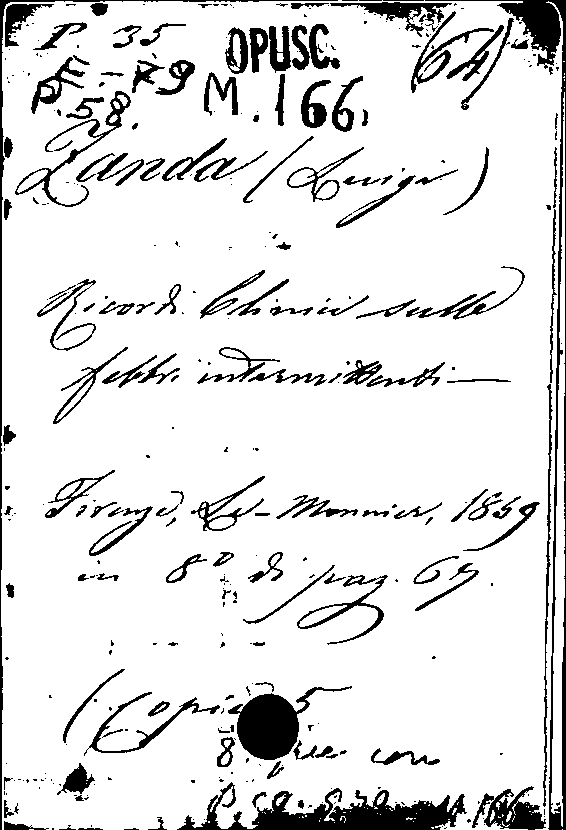 P. 35 OPUSC. (64)
E. - 79 M. 166.
P. 58.
Zanda (Luigi)
Ricordi Clinici sulle
febbri intermittenti —
Firenze, Le-Monnier, 1859
in 8º di pag. 67.
(Copie 5
8. con
166